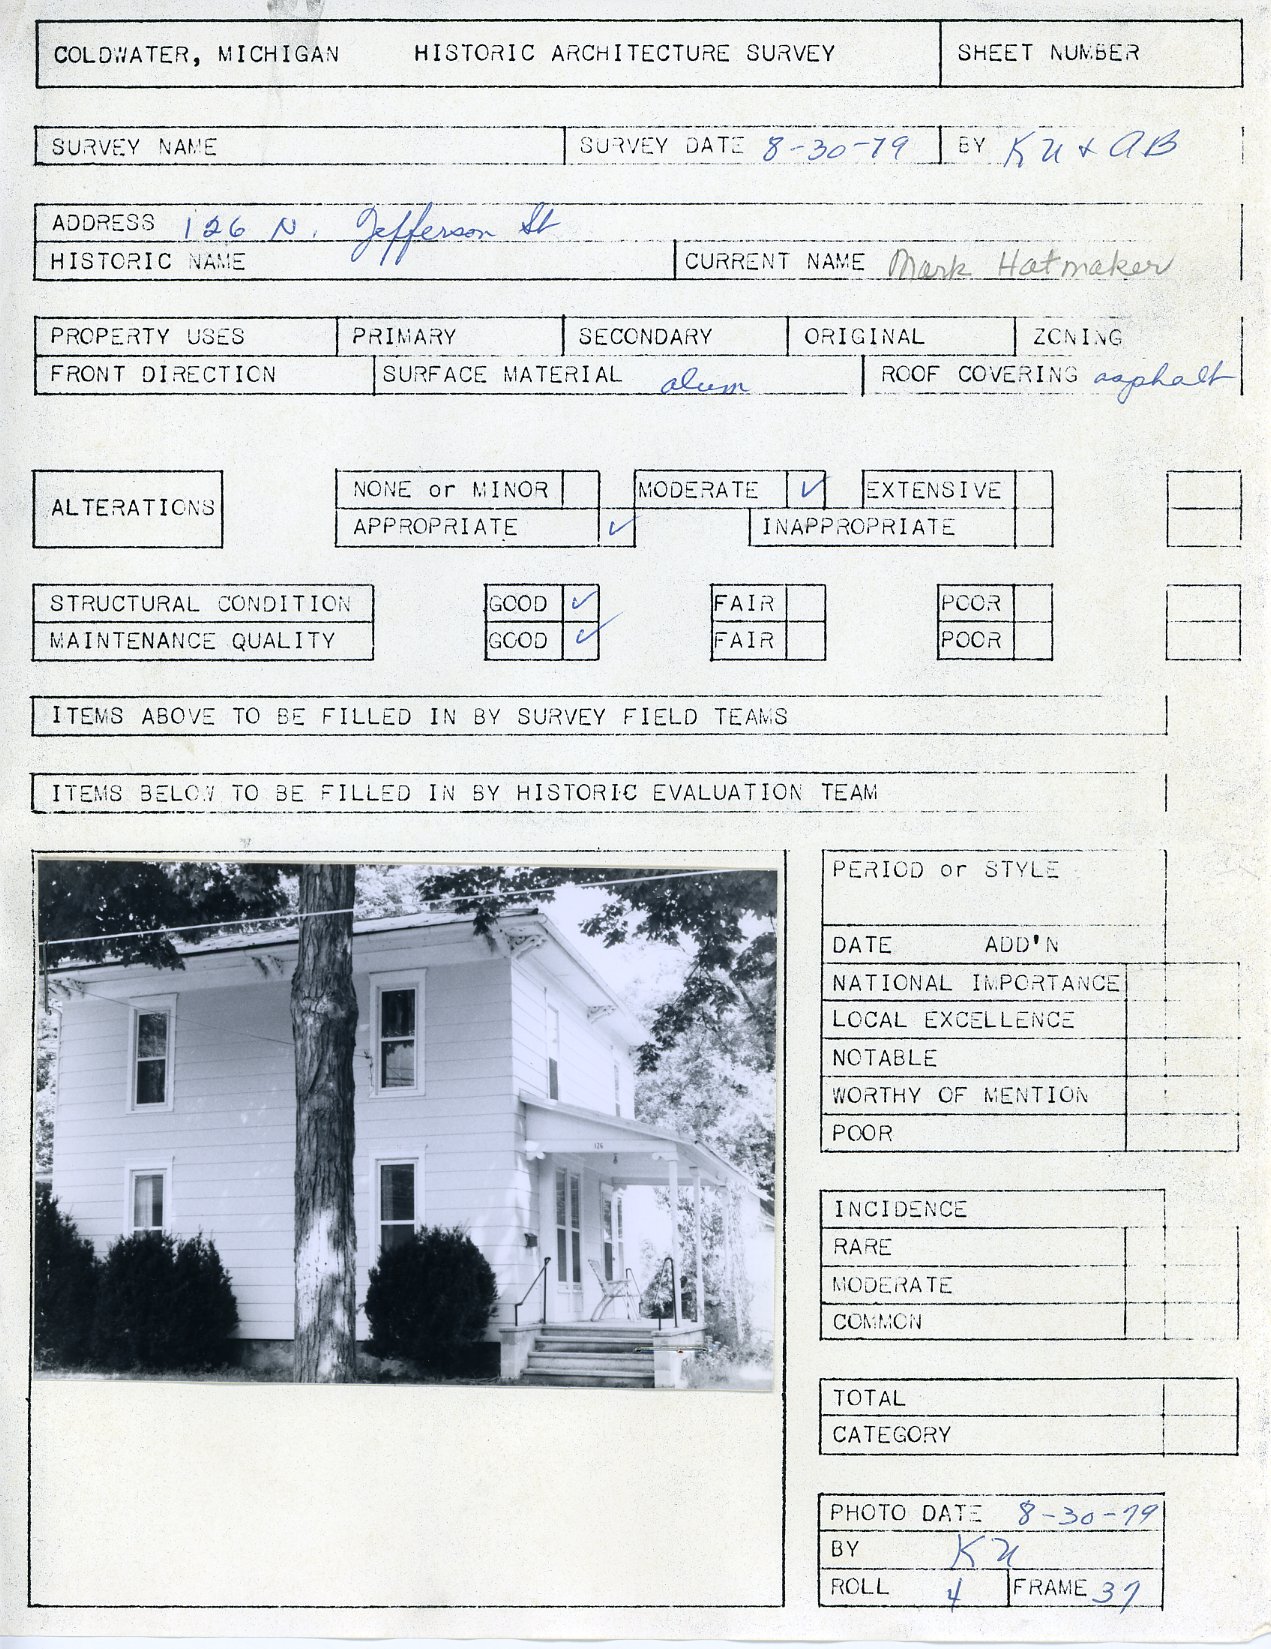 COLDWATER, MICHIGAN HISTORIC ARCHITECTURE SURVEY SHEET NUMBER
SURVEY NAME SURVEY DATE 8-30-79 BY KU & AB
ADDRESS 126 N. Jefferson St
HISTORIC NAME CURRENT NAME Mark Hatmaker
PROPERTY USES PRIMARY SECONDARY ORIGINAL ZONING
FRONT DIRECTION SURFACE MATERIAL alum ROOF COVERING asphalt
ALTERATIONS NONE or MINOR MODERATE ✓ EXTENSIVE
APPROPRIATE ✓ INAPPROPRIATE
STRUCTURAL CONDITION GOOD ✓ FAIR POOR
MAINTENANCE QUALITY GOOD ✓ FAIR POOR
ITEMS ABOVE TO BE FILLED IN BY SURVEY FIELD TEAMS
ITEMS BELOW TO BE FILLED IN BY HISTORIC EVALUATION TEAM
126
PERIOD or STYLE
DATE ADD'N
NATIONAL IMPORTANCE
LOCAL EXCELLENCE
NOTABLE
WORTHY OF MENTION
POOR
INCIDENCE
RARE
MODERATE
COMMON
TOTAL
CATEGORY
PHOTO DATE 8-30-79
BY KU
ROLL 4 FRAME 37